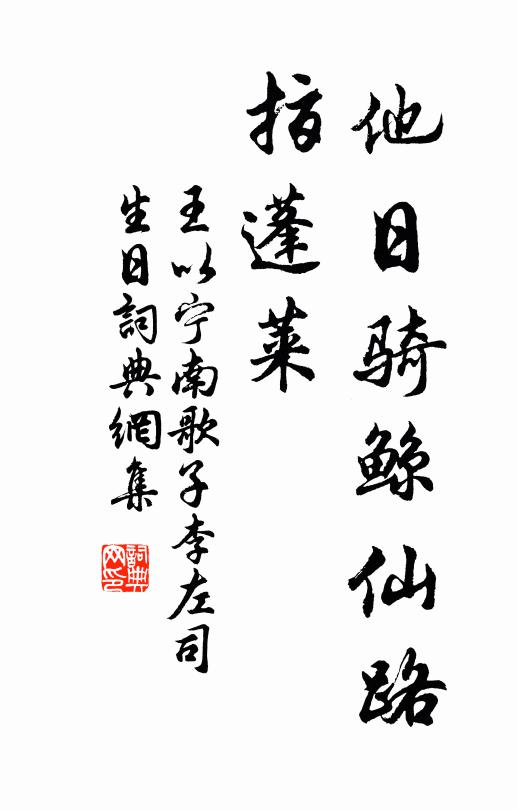 他日骑鲸仙路
指蓬莱
王以宁南歌子李左司
生日詞典網集
詞典
网印